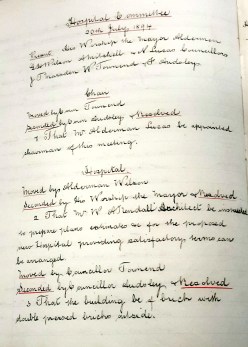 Hospital Committee
20th July 1894
Present His Worship the Mayor Aldermen
Wilson Mitchell & N Lucas Councillors
J W Townend
Chair
Moved by Coun Townend
Seconded by Coun Audsley & Resolved
1 That Mr Alderman Lucas be appointed
chairman of this meeting.
Hospital
Moved by Alderman Wilson
Seconded by His Worship the Mayor & Resolved
2 That Mr W A Kendall Architect be instructed
to prepare plans estimates &c for the proposed
new Hospital providing satisfactory terms can
be arranged
Moved by Councillor Townend
Seconded by Councillor Audsley & Resolved
3 That the building be of brick with
double pressed bricks outside.